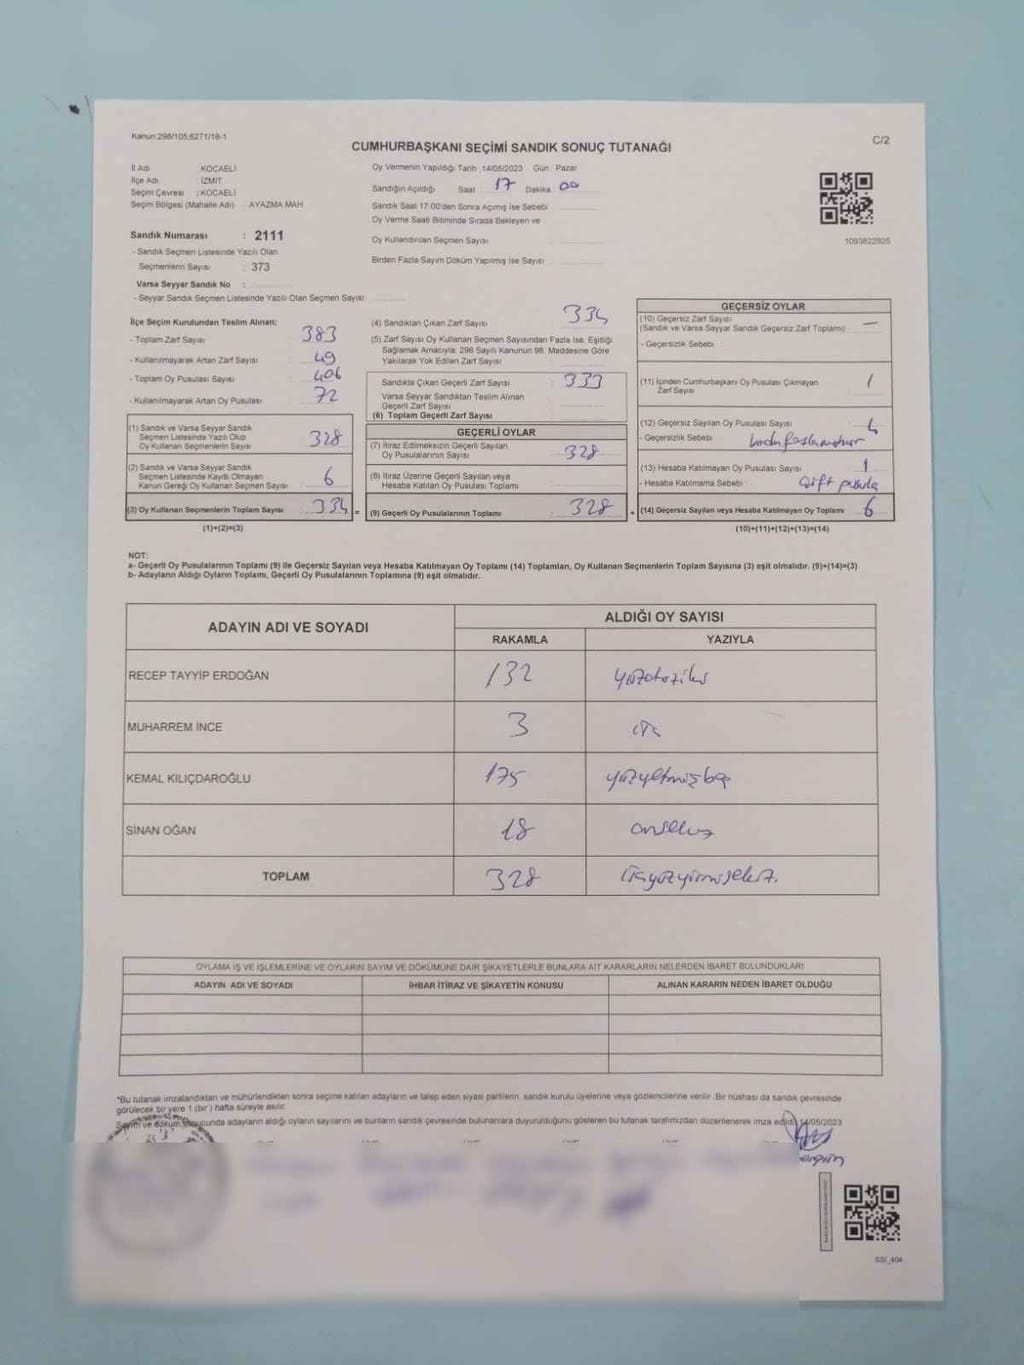 Kanun:298/105,6271/18-1
C/2
CUMHURBAŞKANI SEÇİMİ SANDIK SONUÇ TUTANAĞI
İl Adı KOCAELİ
İlçe Adı İZMİT
Seçim Çevresi : KOCAELİ
Seçim Bölgesi (Mahalle Adı) AYAZMA MAH.
Sandık Numarası : 2111
- Sandık Seçmen Listesinde Yazılı Olan
Seçmenlerin Sayısı : 373
Varsa Seyyar Sandık No :
- Seyyar Sandık Seçmen Listesinde Yazılı Olan Seçmen Sayısı
Oy Vermenin Yapıldığı Tarih :14/05/2023 Gün : Pazar
Sandığın Açıldığı Saat 17 Dakika 00
Sandık Saat 17:00'den Sonra Açımış İse Sebebi
Oy Verme Saati Bitiminde Sırada Bekleyen ve
Oy Kullandırılan Seçmen Sayısı
Birden Fazla Sayım Döküm Yapılmış İse Sayısı
1093822925
İlçe Seçim Kurulundan Teslim Alınan;
- Toplam Zarf Sayısı 383
- Kullanılmayarak Artan Zarf Sayısı 49
- Toplam Oy Pusulası Sayısı 406
- Kullanılmayarak Artan Oy Pusulası 72
(1) Sandık ve Varsa Seyyar Sandık
Seçmen Listesinde Yazılı Olup
Oy Kullanan Seçmenlerin Sayısı 328
(2) Sandık ve Varsa Seyyar Sandık
Seçmen Listesinde Kayıtlı Olmayan
Kanun Gereği Oy Kullanan Seçmen Sayısı 6
(3) Oy Kullanan Seçmenlerin Toplam Sayısı 334 =
(1)+(2)=(3)
(4) Sandıktan Çıkan Zarf Sayısı 334
(5) Zarf Sayısı Oy Kullanan Seçmen Sayısından Fazla İse, Eşitliği
Sağlamak Amacıyla; 298 Sayılı Kanunun 98. Maddesine Göre
Yakılarak Yok Edilen Zarf Sayısı
Sandıkta Çıkan Geçerli Zarf Sayısı 333
Varsa Seyyar Sandıktan Teslim Alınan
Geçerli Zarf Sayısı
(6) Toplam Geçerli Zarf Sayısı
GEÇERLİ OYLAR
(7) İtiraz Edilmeksizin Geçerli Sayılan
Oy Pusulalarının Sayısı 328
(8) İtiraz Üzerine Geçerli Sayılan veya
Hesaba Katılan Oy Pusulası Toplamı
(9) Geçerli Oy Pusulalarının Toplamı 328 +
GEÇERSİZ OYLAR
(10) Geçersiz Zarf Sayısı —
(Sandık ve Varsa Seyyar Sandık Geçersiz Zarf Toplamı)
- Geçersizlik Sebebi
(11) İçinden Cumhurbaşkanı Oy Pusulası Çıkmayan
Zarf Sayısı 1
(12) Geçersiz Sayılan Oy Pusulası Sayısı 4
- Geçersizlik Sebebi
(13) Hesaba Katılmayan Oy Pusulası Sayısı 1
- Hesaba Katılmama Sebebi Çift pusula
(14) Geçersiz Sayılan veya Hesaba Katılmayan Oy Toplamı 6
(10)+(11)+(12)+(13)=(14)
NOT:
a- Geçerli Oy Pusulalarının Toplamı (9) ile Geçersiz Sayılan veya Hesaba Katılmayan Oy Toplamı (14) Toplamları, Oy Kullanan Seçmenlerin Toplam Sayısına (3) eşit olmalıdır. (9)+(14)=(3)
b- Adayların Aldığı Oyların Toplamı, Geçerli Oy Pusulalarının Toplamına (9) eşit olmalıdır.
ADAYIN ADI VE SOYADI ALDIĞI OY SAYISI
RAKAMLA YAZIYLA
RECEP TAYYİP ERDOĞAN 132 yüzotuziki
MUHARREM İNCE 3 üç
KEMAL KILIÇDAROĞLU 175 yüzyetmişbeş
SİNAN OĞAN 18 onsekiz
TOPLAM 328 üçyüzyirmisekiz.
OYLAMA İŞ VE İŞLEMLERİNE VE OYLARIN SAYIM VE DÖKÜMÜNE DAİR ŞİKAYETLERLE BUNLARA AİT KARARLARIN NELERDEN İBARET BULUNDUKLARI
ADAYIN ADI VE SOYADI İHBAR İTİRAZ VE ŞİKAYETİN KONUSU ALINAN KARARIN NEDEN İBARET OLDUĞU
*Bu tutanak imzalandıktan ve mühürlendikten sonra seçime katılan adayların ve talep eden siyasi partilerin sandık kurulu üyelerine veya gözlemcilerine verilir. Bir nüshası da sandık çevresinde
görülecek bir yere 1 (bir) hafta süreyle asılır.
Sayım ve döküm sonucunda adayların aldığı oyların sayılarını ve bunların sandık çevresinde bulunanlara duyurulduğunu gösteren bu tutanak tarafımızdan düzenlenerek imza edildi.14/05/2023
SSİ_404